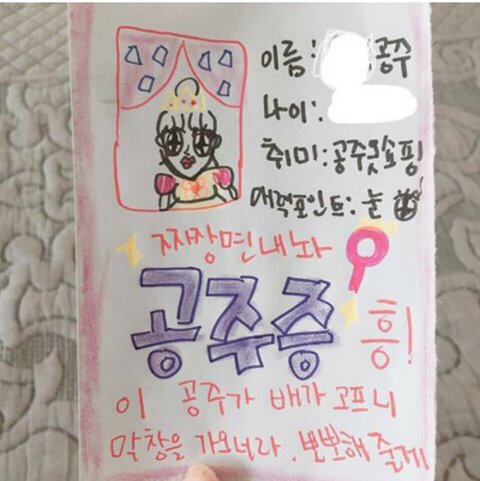 이름: 공주
나이:
취미: 공주옷쇼핑
매력포인트: 눈
짜장면내놔
공주증
흥!
이 공주가 배가 고프니
말창을 가오너라. 뽀뽀해 줄게